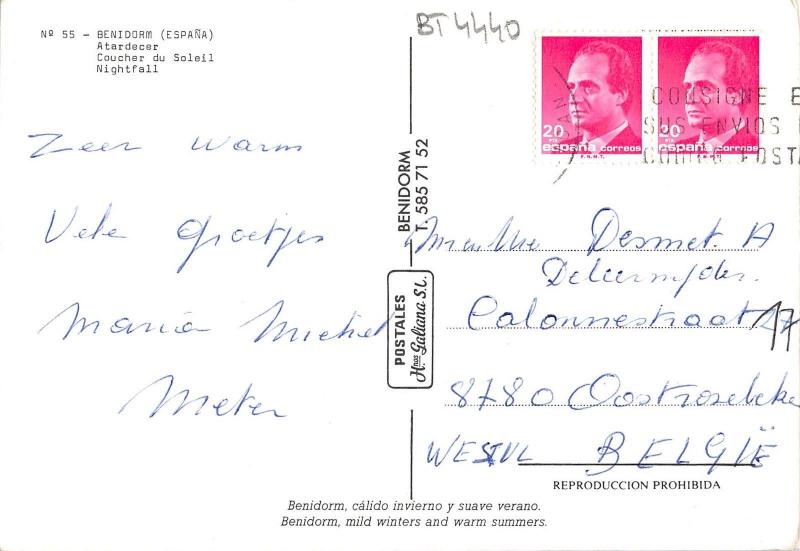 Nº 55 - BENIDORM (ESPAÑA)
Atardecer
Coucher du Soleil
Nightfall
BT 4440
20 PTA
españa correos
F.N.M.T.
20
españa correos
F.N.M.T.
CONSIGNE E
SUS ENVIOS
POSTA
Zeer warm
Vele groetjes
Maria Michel
BENIDORM
T. 585 71 52
POSTALES
Hnos Galiana S.L.
Desmet. A
Calonnestraat 17
8780 Oostrozebeke
WESTVL BELGIË
REPRODUCCION PROHIBIDA
Benidorm, cálido invierno y suave verano.
Benidorm, mild winters and warm summers.